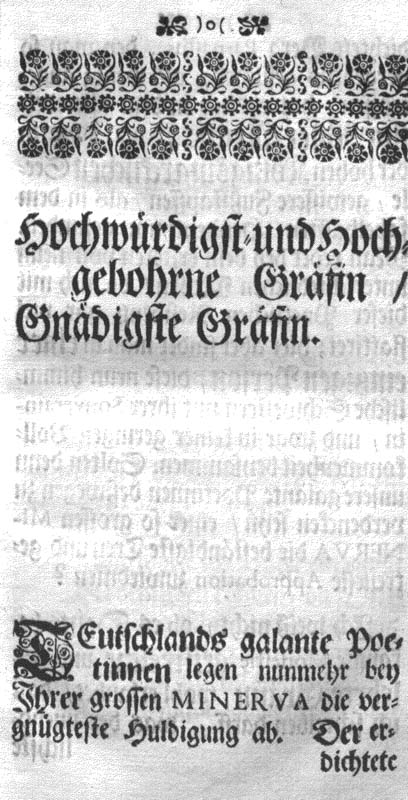 )o(
Hochwürdigst-und Hoch-
gebohrne Gräfin /
Gnädigste Gräfin.
TEutschlands galante Poe-
tinnen legen nunmehr bey
Ihrer grossen MINERVA die ver-
gnügteste Huldigung ab. Der er-
dichtete